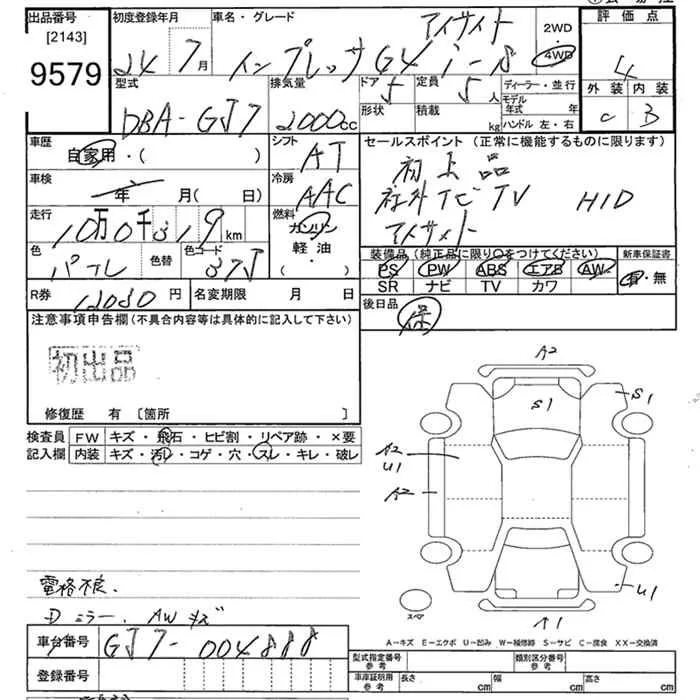 出品番号 初度登録年月 車名・グレード アイサイト 2WD 評価点
[2143] 24年 7月 インプレッサG4 i-S 4WD 4
9579 型式 排気量 ドア 定員 ディーラー・並行 外装 内装
DBA-GJ7 2000cc 5 5人 モデル年式 年 C B
形状 積載 kg ハンドル 左・右
車歴 シフト セールスポイント(正常に機能するものに限ります)
自家用・( ) AT 初出品
車検 冷房 社外ナビTV HID
年 月( 日) AAC アイサイト
走行 燃料
10万0千319km ガソリン
色 色替 色コード 軽・油 装備品(純正品に限り○をつけてください) 新車保証書
パール 37J ・( ) PS PW ABS エアB AW 有・無
R券 12080円 名変期限 月 日 SR ナビ TV カワ
注意事項申告欄(不具合内容等は具体的に記入して下さい) 後日品 保
初出品
修復歴 有 [箇所 ]
検査員 FW キズ・飛石・ヒビ割・リペア跡・×要
記入欄 内装 キズ・汚レ・コゲ・穴・スレ・キレ・破レ
A2
S1
S1
A2
U1
A2
U1
スペア
A1
電格不良.
ミラー. AWキズ
A-キズ E-エクボ U-凹み W-補修跡 S-サビ C-腐食 XX-交換済
車台番号 GJ7-004888
登録番号
型式指定番号 参考 類別区分番号 参考
車庫証明用 参考 長さ cm 幅 cm 高さ cm